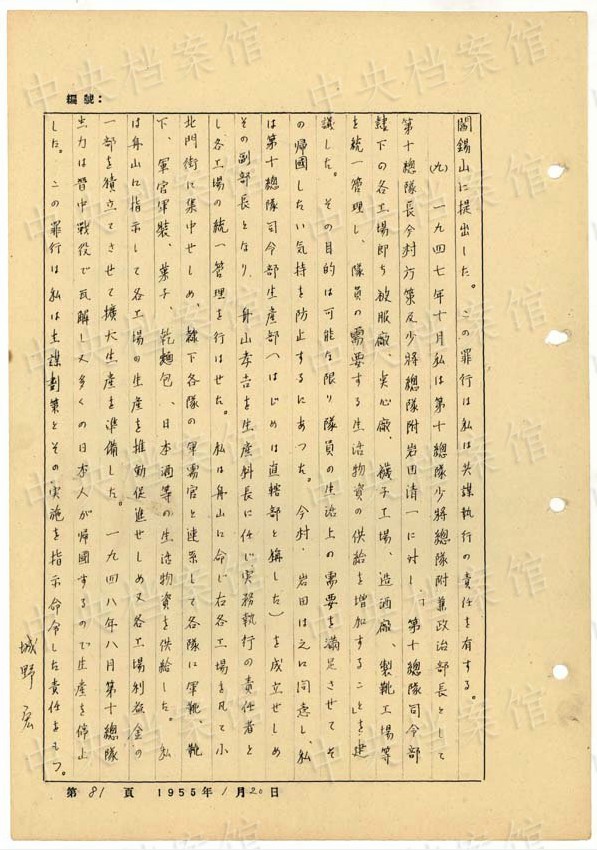 編號：
閻錫山に提出した。この罪行は私は共謀執行の責任を有する。
(九) 一九四七年十月私は第十總隊少將總隊附兼政治部長として
第十總隊長今村方策及少將總隊附岩田清一に対し、第十總隊司令部
隷下の各工場即ち被服廠、点心廠、襪子工場、造酒廠、製靴工場等
を統一管理し、隊員の需要する生活物資の供給を増加することを建
議した。その目的は可能な限り隊員の生活上の需要を満足させてそ
の帰國したい気持を防止するにあつた。今村、岩田は之に同意し、私
は第十總隊司令部生産部(はじめは直轄部と稱した)を成立せしめ
その副部長となり、舟山孝吉を生産科長に任じ実務執行の責任者と
し各工場の統一管理を行はせた。私は舟山に命じ右各工場を凡て小
北門街に集中せしめ、隷下各隊の軍需官と連系して各隊に軍靴、靴
下、軍官軍装、菓子、乾麺包、日本酒等の生活物資を供給した。私
は舟山に指示して各工場の生産を推動促進せしめ又各工場利益金の
一部を積立てさせて擴大生産を準備した。一九四八年八月第十總隊
主力は晋中戦役で瓦解し又多くの日本人が帰國するので生産を停止
した。この罪行は私は主謀劃策とその実施を指示命令した責任をもつ。
城野宏
第 81 頁 1955年 1 月 20 日
中央档案馆